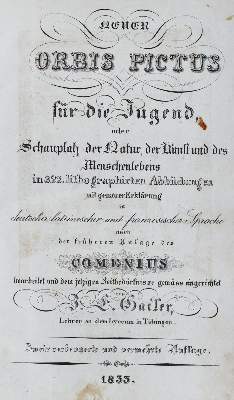 NEUER
ORBIS PICTUS
für die Jugend,
oder
Schauplatz der Natur, der Kunst und des
Menschenlebens
in 322 lithographirten Abbildungen
mit genauer Erklärung
in
deutscher, lateinischer und französischer Sprache
nach
der früheren Anlage des
COMENIUS
bearbeitet und dem jetzigen Zeitbedürfnisse gemäss eingerichtet
von
J. E. Gailer,
Lehrer an dem Lyceum in Tübingen.
Zweite verbesserte und vermehrte Auflage.
1833.